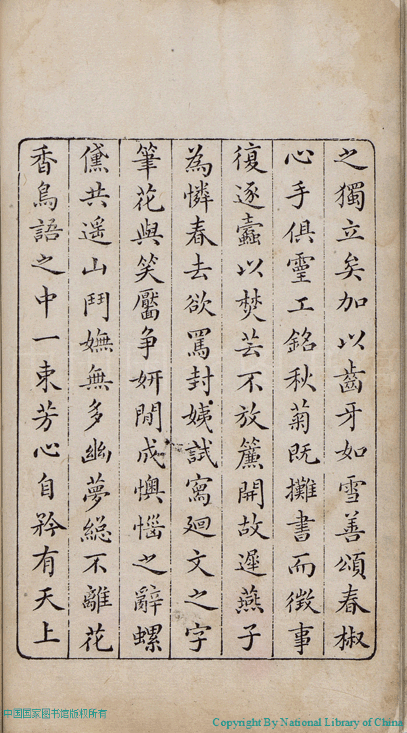 之獨立矣加以齒牙如雪善頌春椒
心手俱靈工銘秋菊既攤書而徴事
復逐蠹以焚芸不放簾開故遲燕子
為憐春去欲罵封姨試寫廻文之字
筆花與笑靨争妍閒成懊惱之辭螺
黛共遥山鬥嫵無多幽夢總不離花
香鳥語之中一束芳心自矜有天上
中国国家图书馆版权所有
Copyright By National Library of China